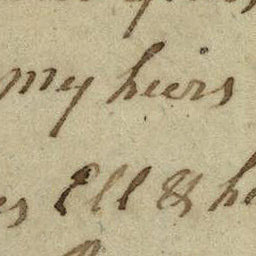 my heirs
Ell & h